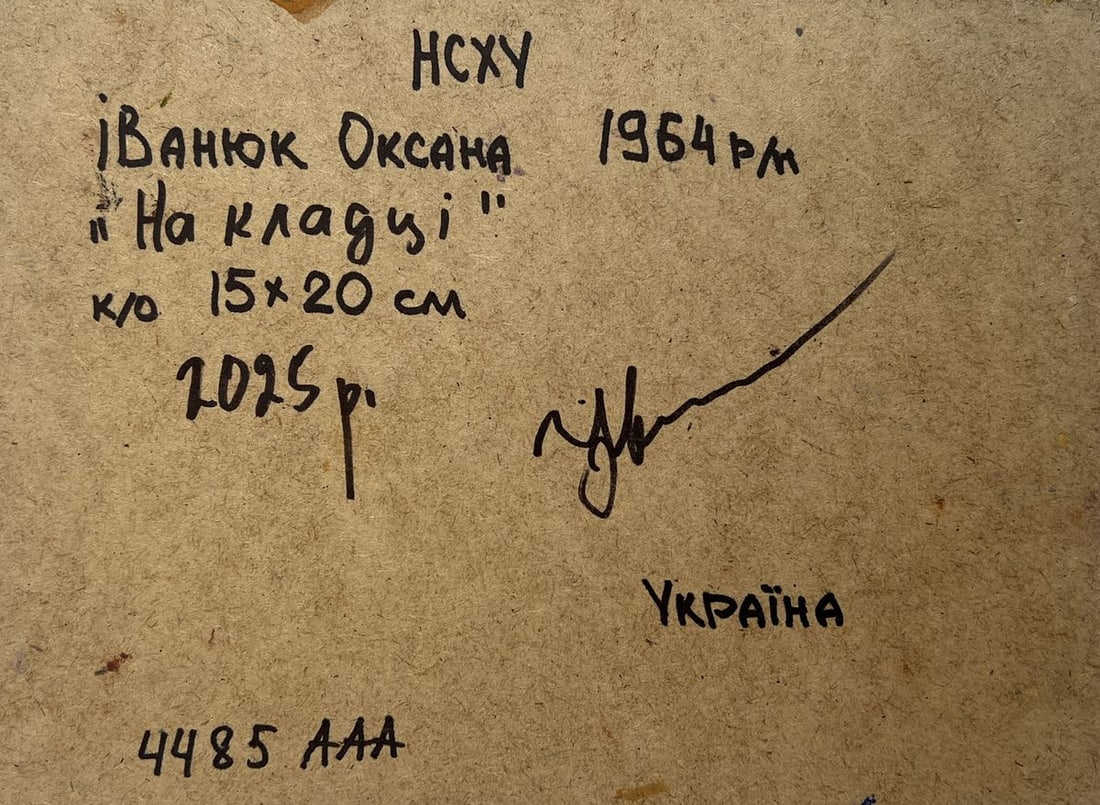 НСХУ
іВанюк Оксана 1964 р/н
"На кладці"
к/о 15×20 см
2025 р.
Україна
4485 ААА